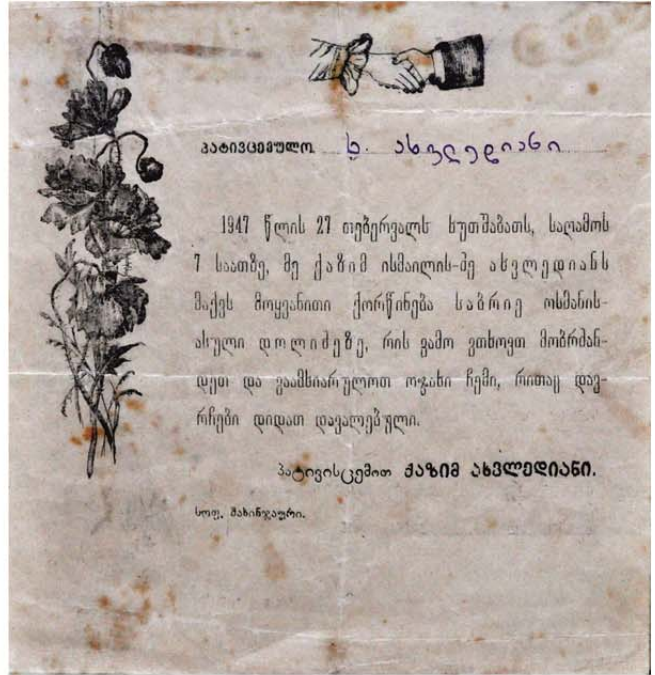 პატივცემულო ხ. ახვლედიანი
1947 წლის 27 თებერვალს ხუთშაბათს, საღამოს
7 საათზე, მე ქაზიმ ისმაილის-ძე ახვლედიანს
მაქვს მოყვანითი ქორწინება საბრიე ოსმანის-
ასული დოლიძეზე, რის გამო გთხოვთ მობრძან-
დეთ და გაამხიარულოთ ოჯახი ჩემი, რითაც დავ-
რჩები დიდათ დავალებული.
პატივისცემით ქაზიმ ახვლედიანი.
სოფ. მახინჯაური.